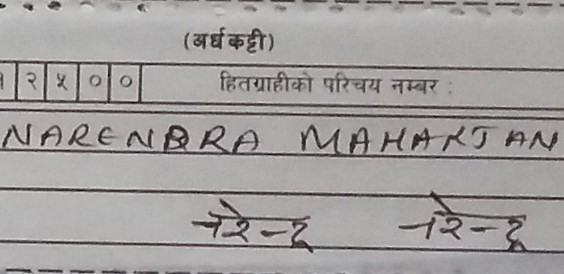 (अर्धकट्टी)
१ २ ५ ० ० हितग्राहीको परिचय नम्बर :
NARENDRA MAHARJAN
नरेन्द्र नरेन्द्र